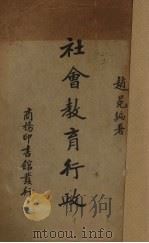 趙冕編著
社會教育行政
商務印書館發行